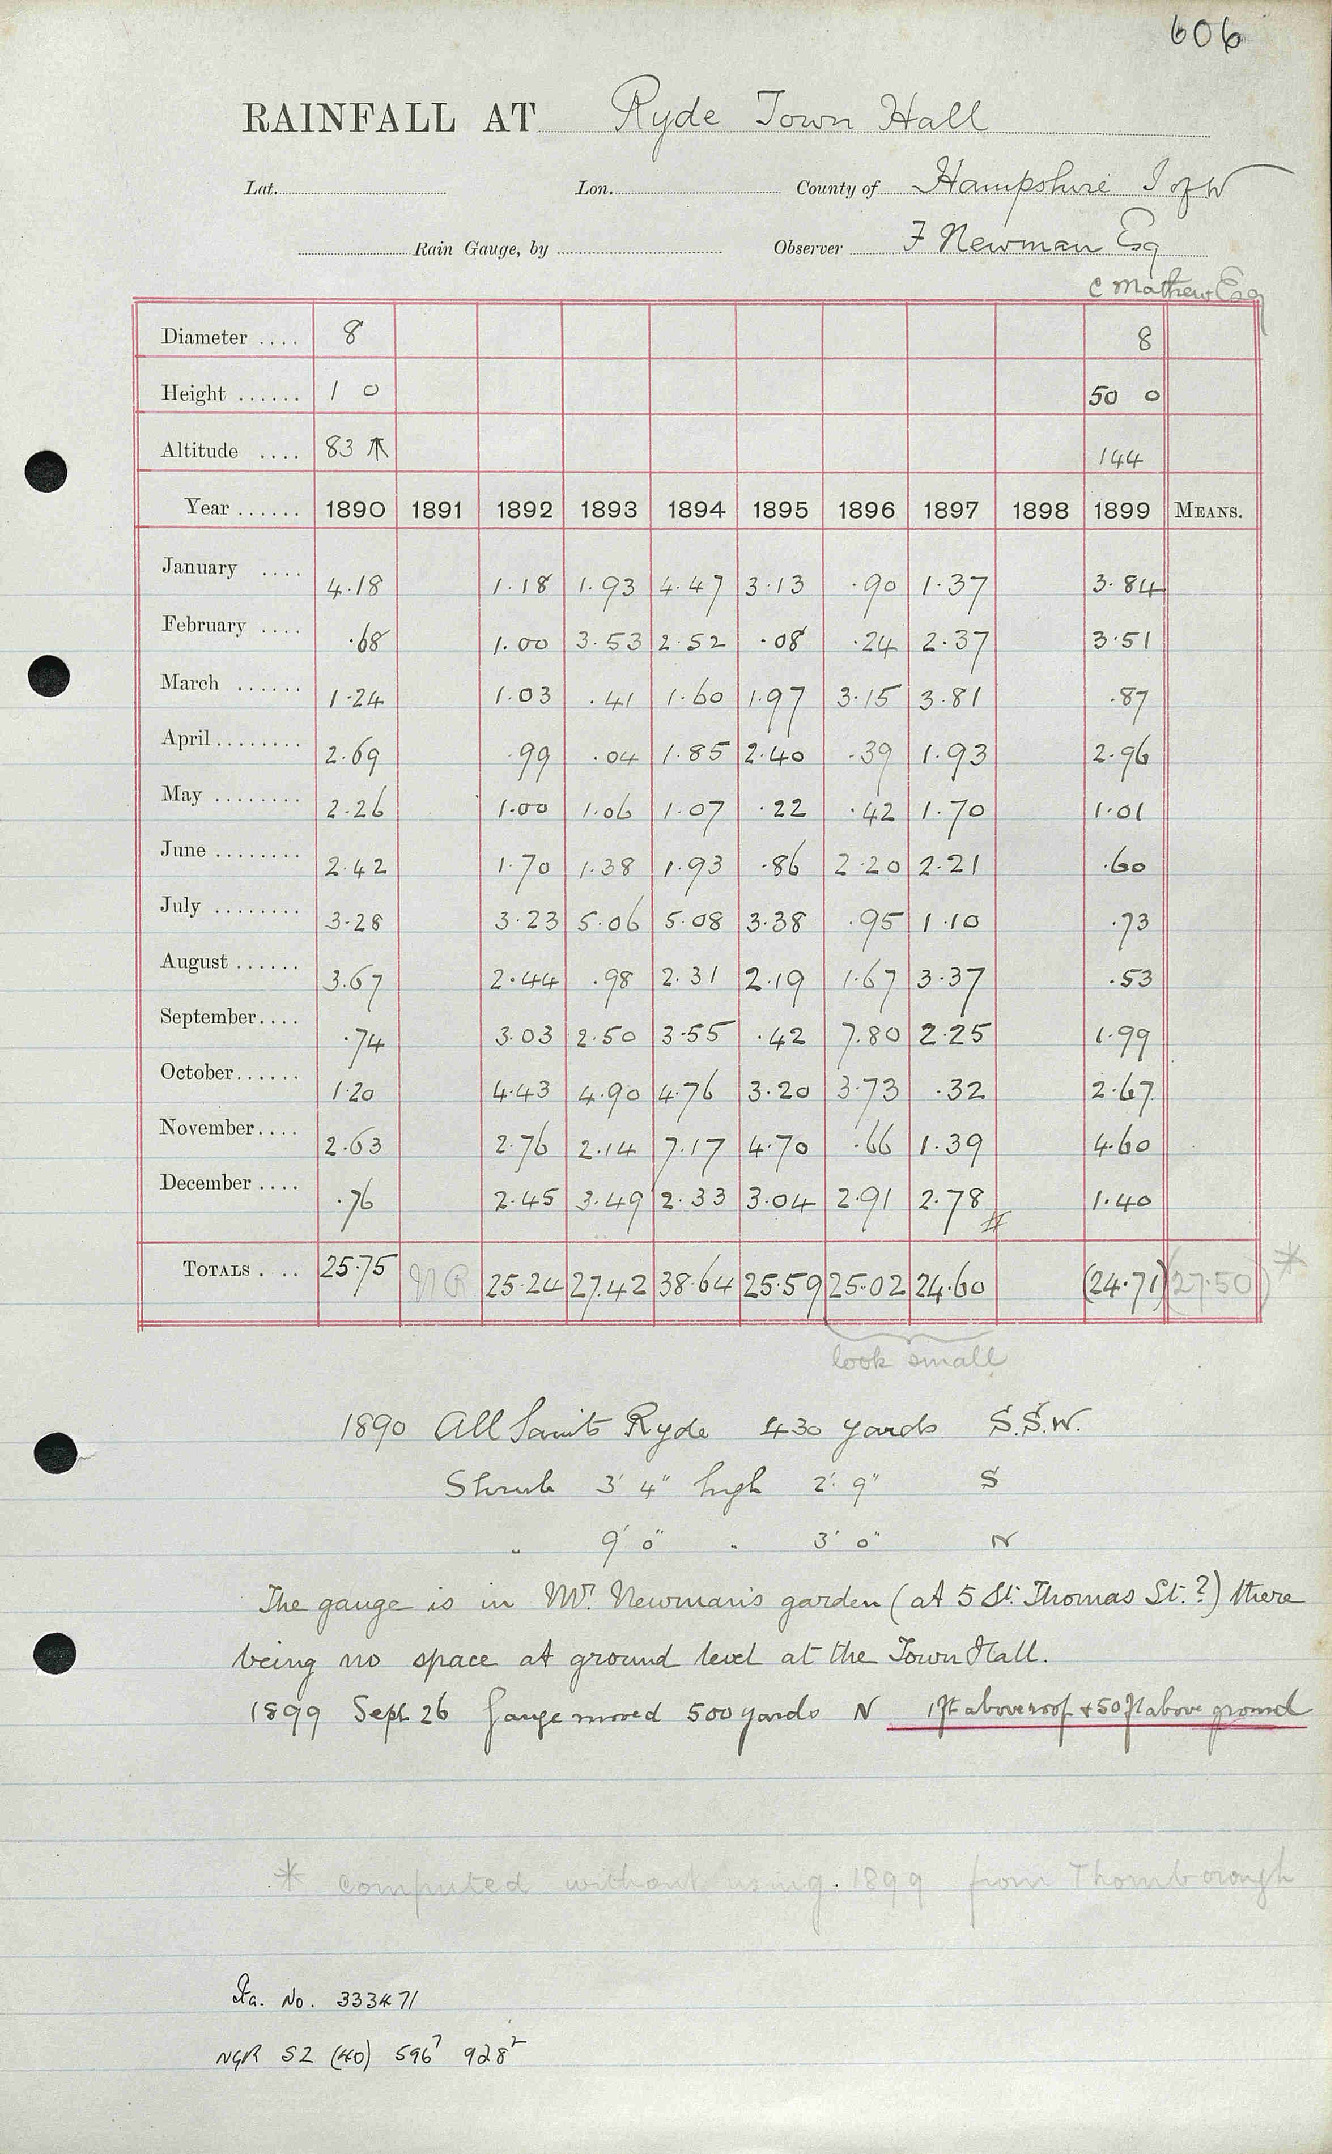 606
RAINFALL AT Ryde Town Hall
Lat. Lon. County of Hampshire I of W
Rain Gauge, by Observer F Newman Esq
C Mathew Esq
Diameter .... 8 8
Height ...... 1 0 50 0
Altitude .... 83 144
Year ...... 1890 1891 1892 1893 1894 1895 1896 1897 1898 1899 MEANS.
January .... 4.18 1.18 1.93 4.47 3.13 .90 1.37 3.84
February .... .68 1.00 3.53 2.52 .08 .24 2.37 3.51
March ...... 1.24 1.03 .41 1.60 1.97 3.15 3.81 .87
April ........ 2.69 .99 .04 1.85 2.40 .39 1.93 2.96
May ........ 2.26 1.00 1.06 1.07 .22 .42 1.70 1.01
June ........ 2.42 1.70 1.38 1.93 .86 2.20 2.21 .60
July ........ 3.28 3.23 5.06 5.08 3.38 .95 1.10 .73
August ...... 3.67 2.44 .98 2.31 2.19 1.67 3.37 .53
September.... .74 3.03 2.50 3.55 .42 7.80 2.25 1.99
October...... 1.20 4.43 4.90 4.76 3.20 3.73 .32 2.67
November.... 2.63 2.76 2.14 7.17 4.70 .66 1.39 4.60
December .... .76 2.45 3.49 2.33 3.04 2.91 2.78 1.40
#
TOTALS .... 25.75 NR 25.24 27.42 38.64 25.59 25.02 24.60 (24.71) (27.50) *
look small
1890 All Saints Ryde 430 yards S.S.W.
Shrub 3' 4" high 2' 9" S
" 9' 0" " 3' 0" N
The gauge is in Mr. Newman's garden (at 5 St. Thomas St.?) there
being no space at ground level at the Town Hall.
1899 Sept 26 Gauge moved 500 yards N 1 ft above roof + 50 ft above ground
* Computed without using 1899 from Thornborough
Sta. No. 333471
NGR SZ (40) 596⁷ 928²